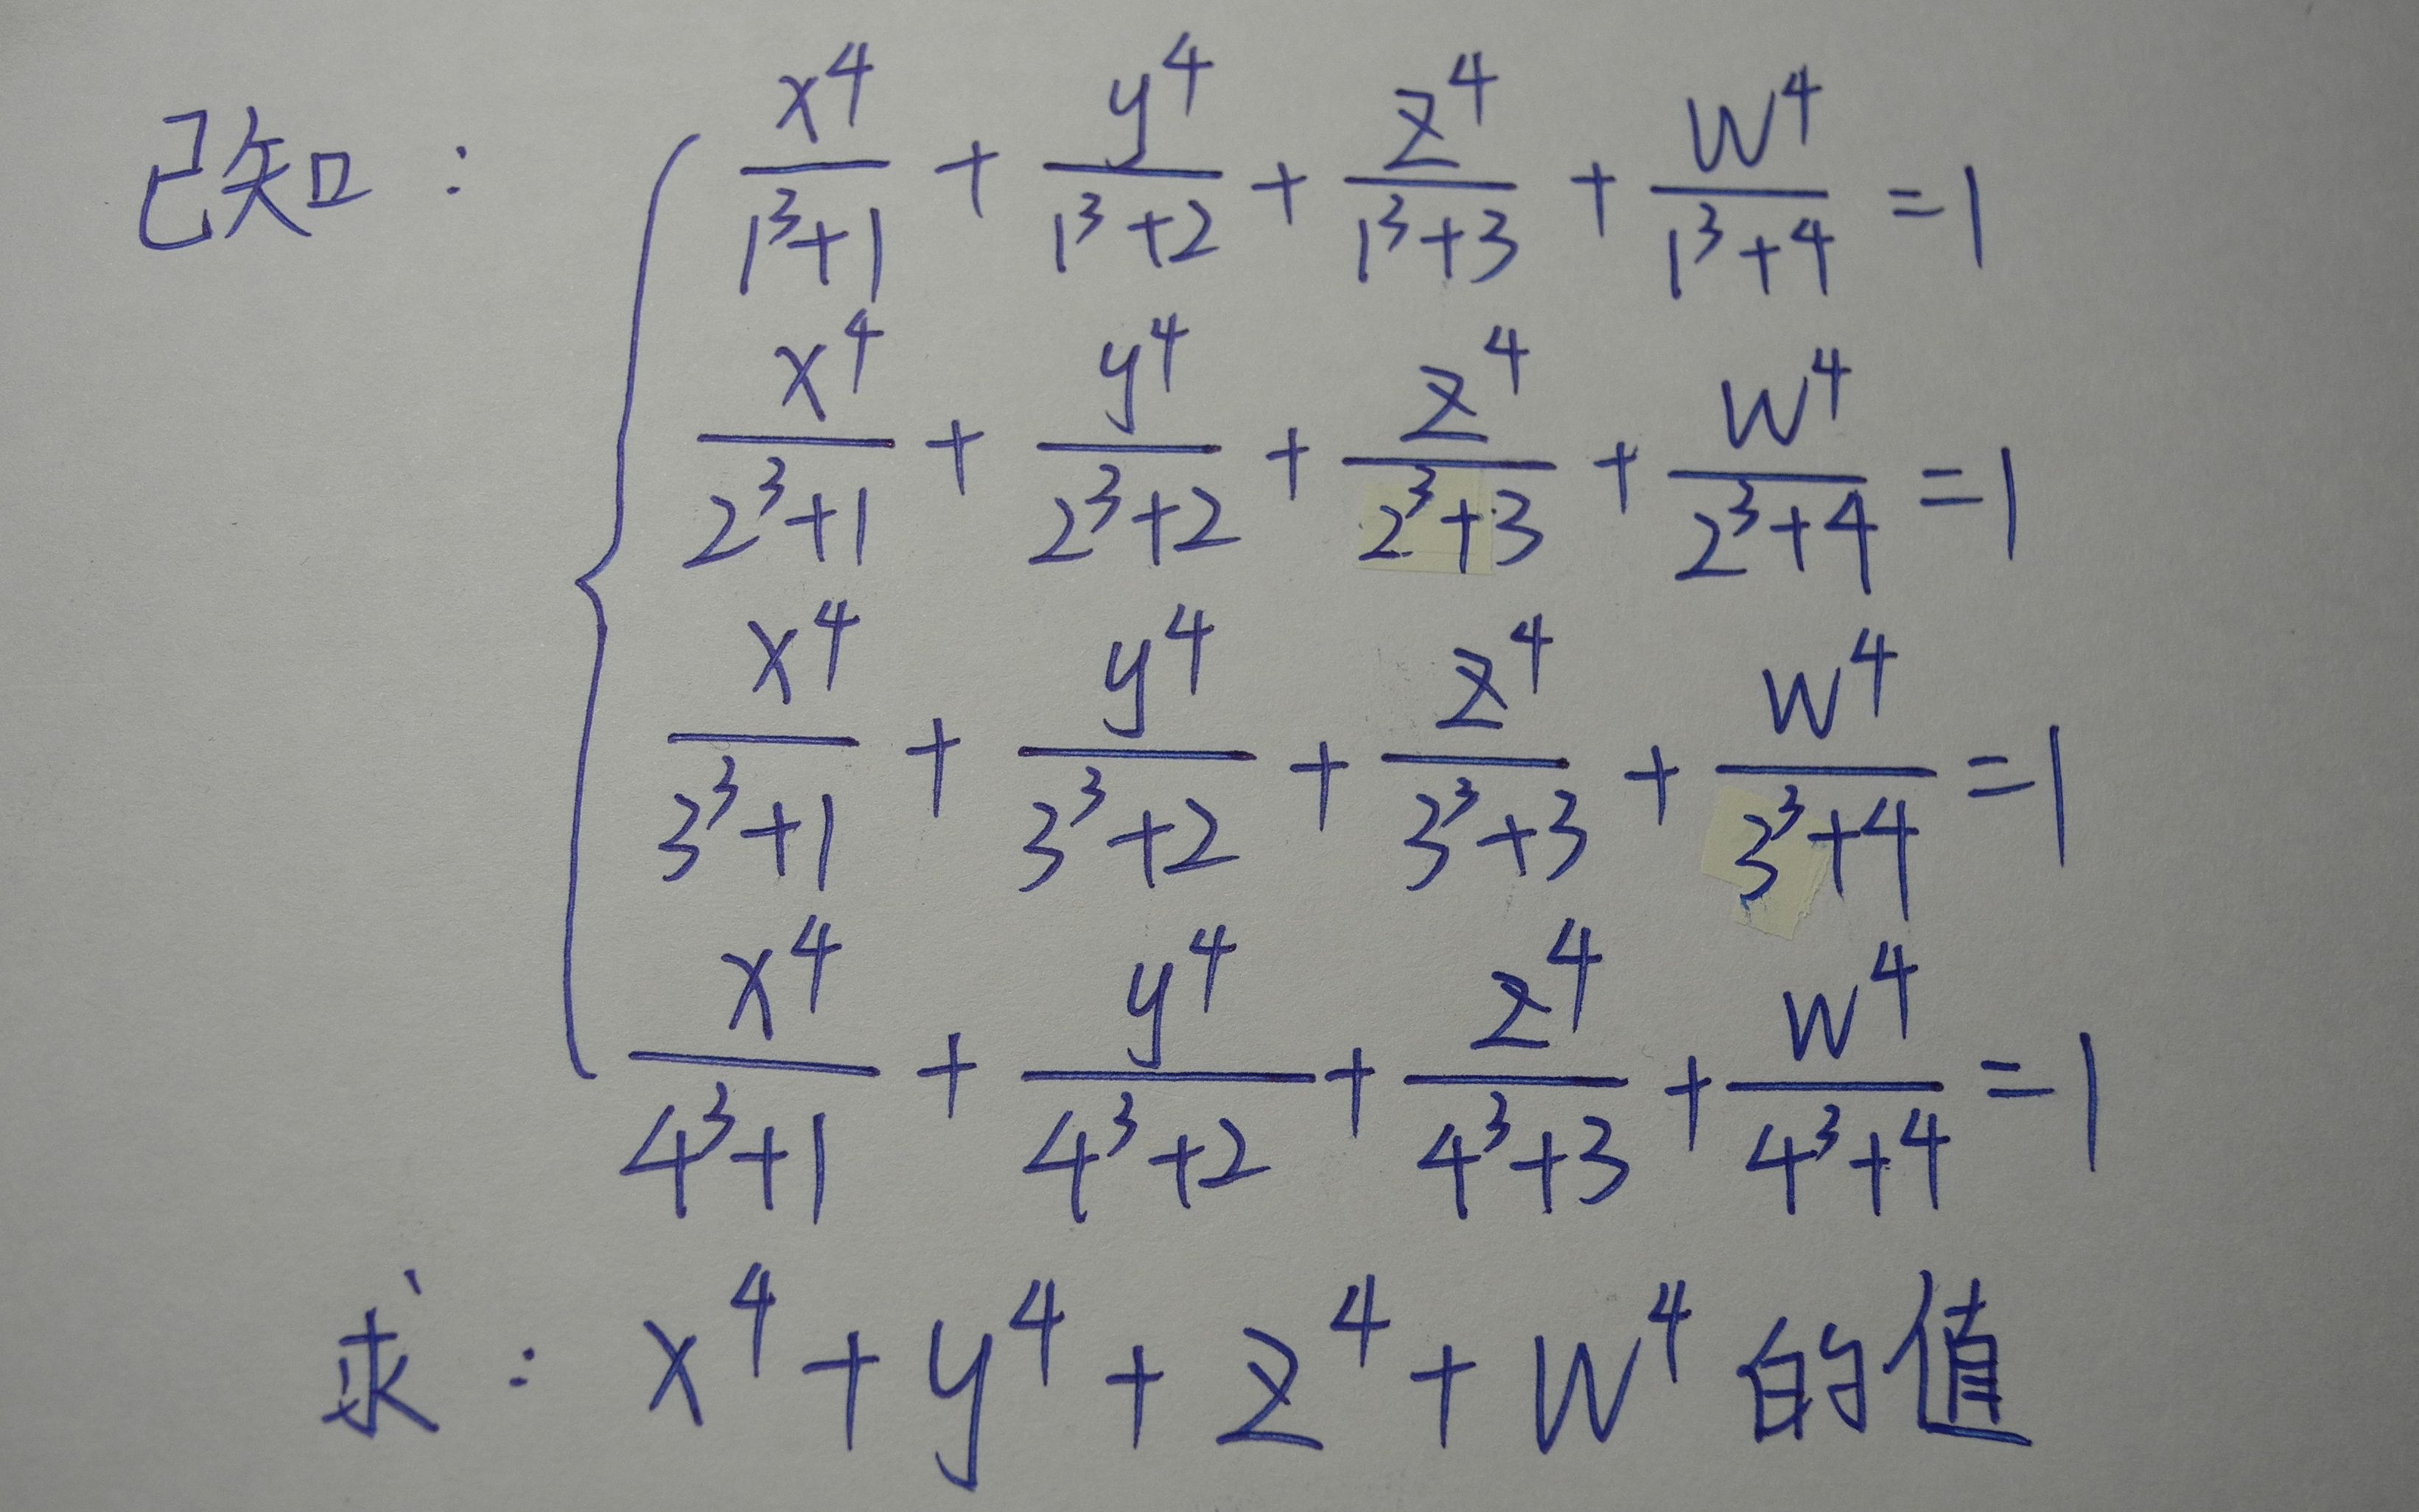 已知: x⁴/(1³+1) + y⁴/(1³+2) + z⁴/(1³+3) + w⁴/(1³+4) = 1
x⁴/(2³+1) + y⁴/(2³+2) + z⁴/(2³+3) + w⁴/(2³+4) = 1
x⁴/(3³+1) + y⁴/(3³+2) + z⁴/(3³+3) + w⁴/(3³+4) = 1
x⁴/(4³+1) + y⁴/(4³+2) + z⁴/(4³+3) + w⁴/(4³+4) = 1
求: x⁴ + y⁴ + z⁴ + w⁴ 的值